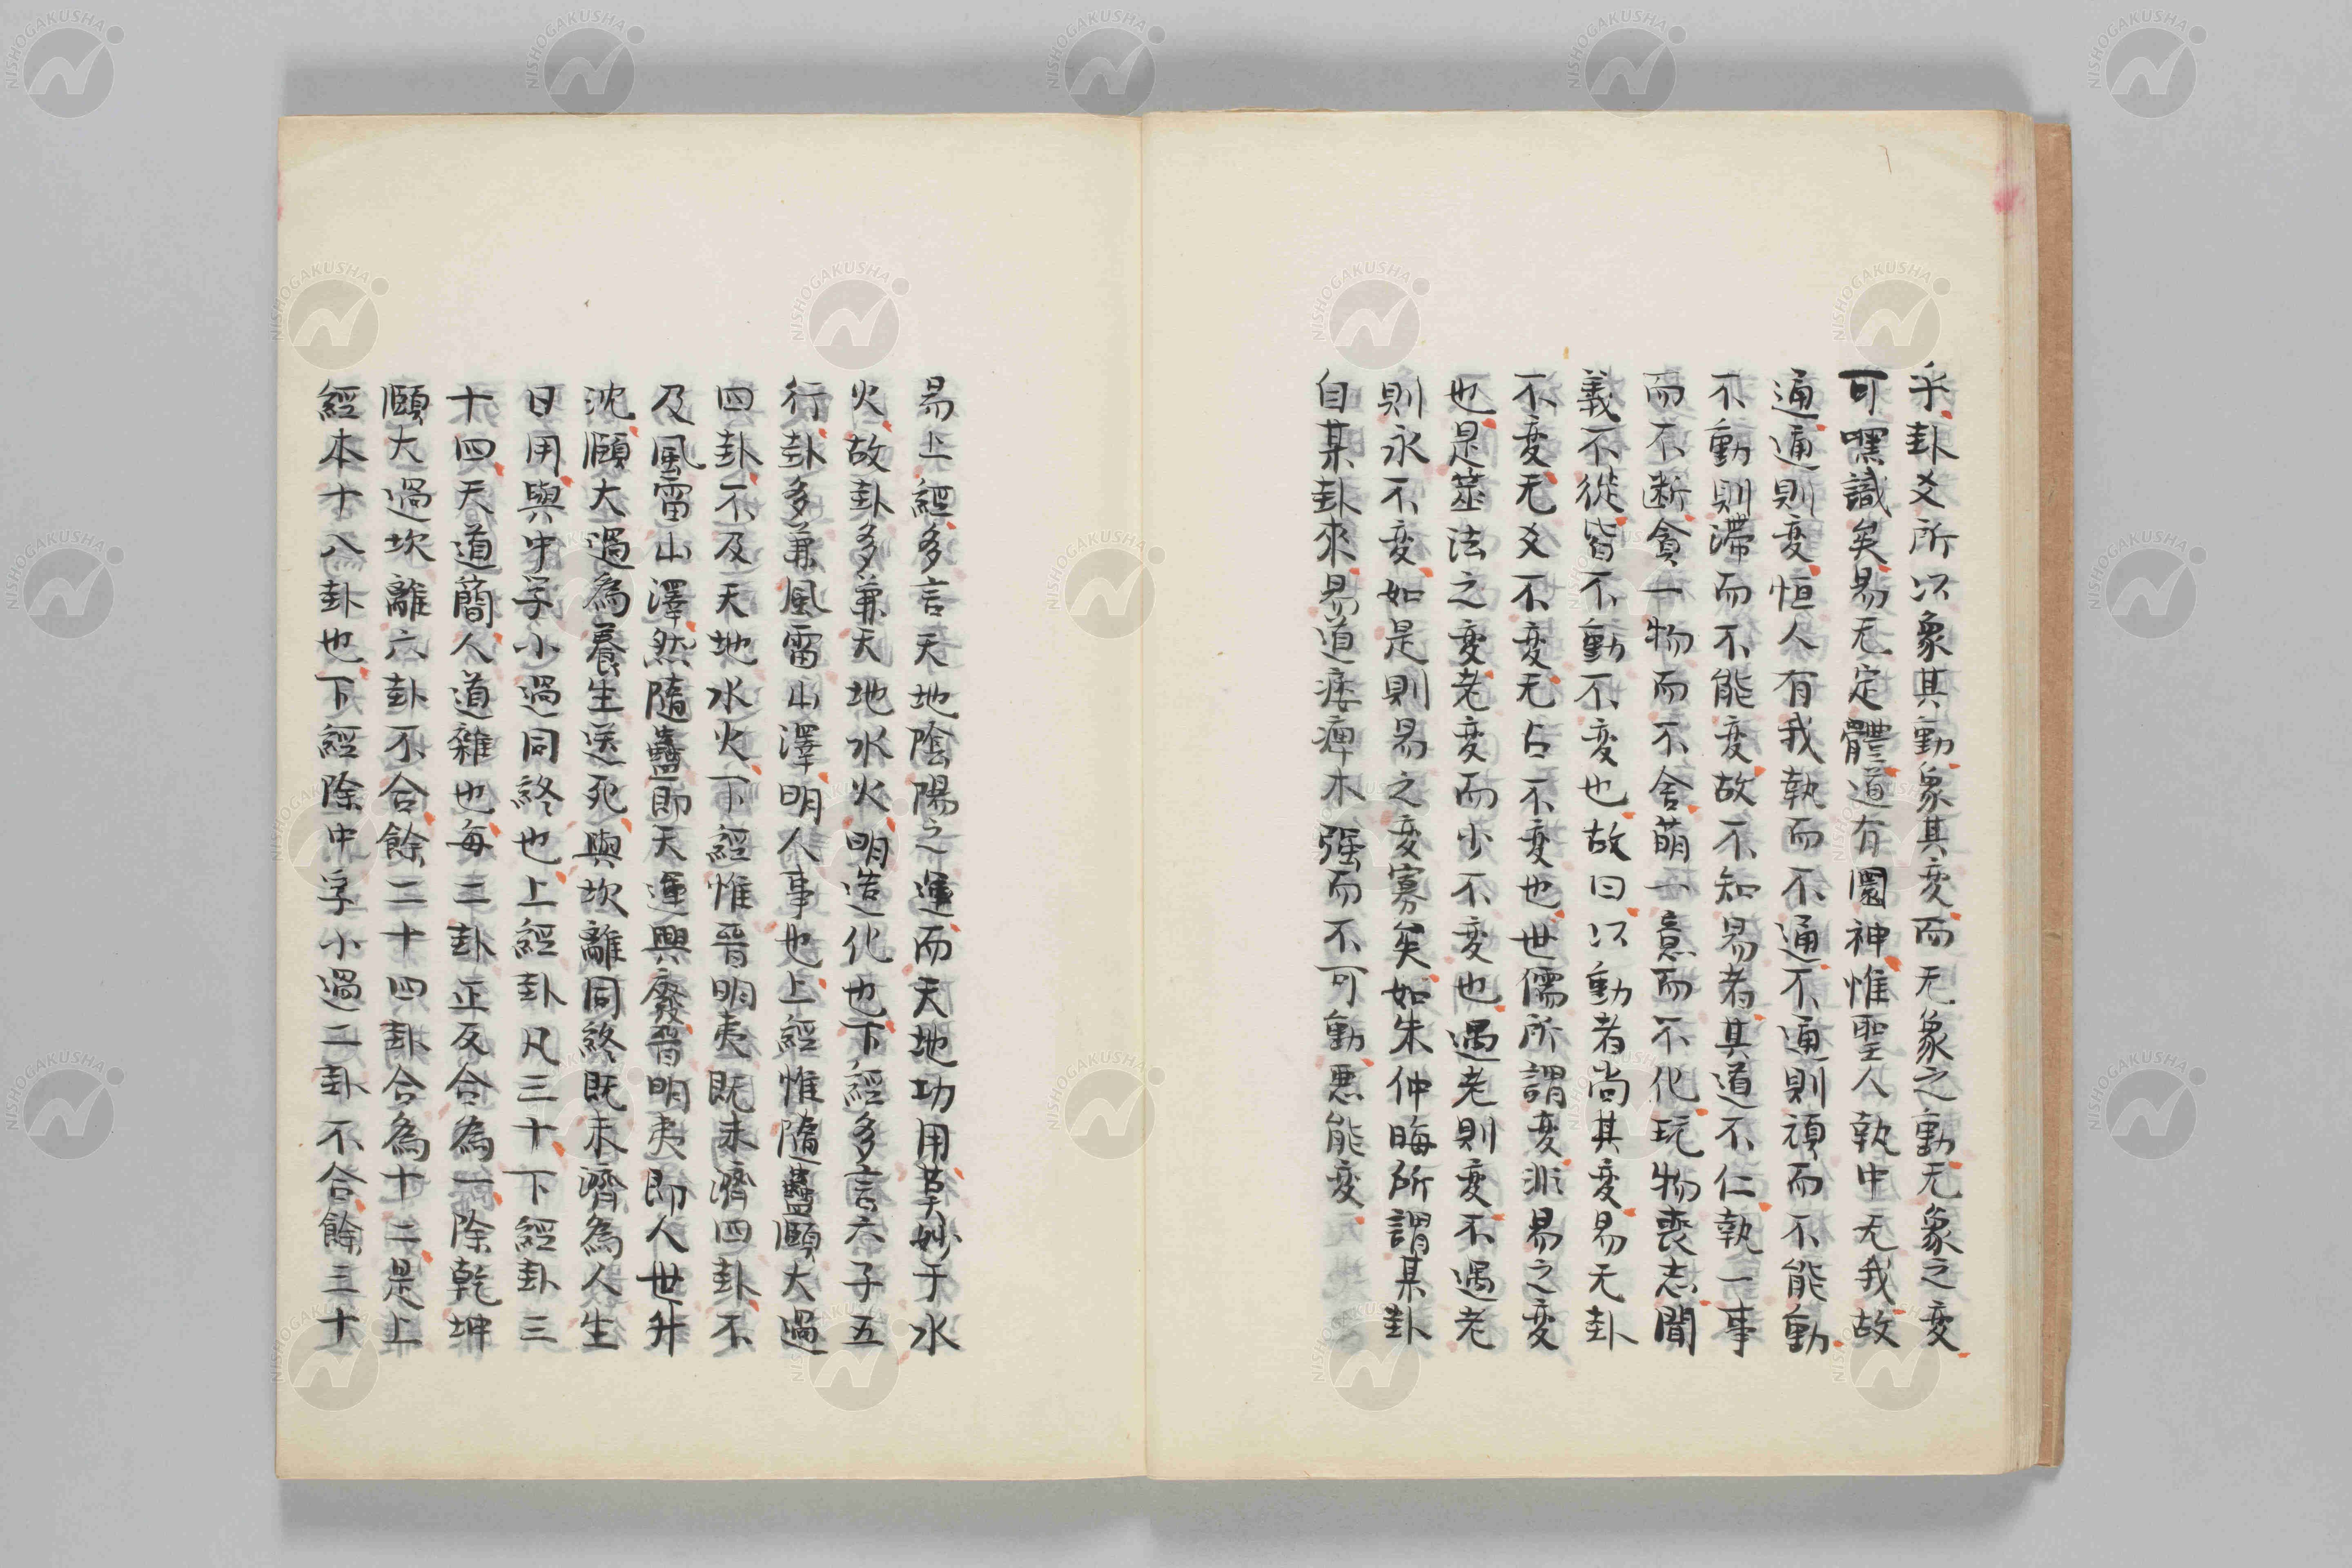 乎卦爻所以象其動象其変而无象之動无象之変
可嘿識矣易无定體道有圜神惟聖人執中无我故
通通則変恒人有我執而不通不通則頑而不能動
不動則滯而不能変故不知易者其道不仁執一事
而不断貪一物而不舍萌一意而不化玩物喪志聞
義不從皆不動不変也故曰以動者尚其変易无卦
不変无爻不変无占不変也世儒所謂変非易之変
也是筮法之変老変而少不変也遇老則変不遇老
則永不変如是則易之変寡矣如朱仲晦所謂某卦
自某卦來易道痿痺木强而不可動悪能変
易上經多言天地陰陽之運而天地功用莫妙于水
火故卦多兼天地水火明造化也下經多言六子五
行卦多兼風雷山澤明人事也上經惟隨蠱頤大過
四卦不及天地水火下經惟晉明夷既未濟四卦不
及風雷山澤然隨蠱即天運興廢晉明夷即人世升
沈頤大過為養生送死與坎離同終既未濟為人生
日用與中孚小過同終也上經卦凡三十下經卦三
十四天道簡人道雜也每二卦正反合為一除乾坤
頤大過坎離六卦不合餘二十四卦合為十二是上
經本十八卦也下經除中孚小過二卦不合餘三十
NISHOGAKUSHA